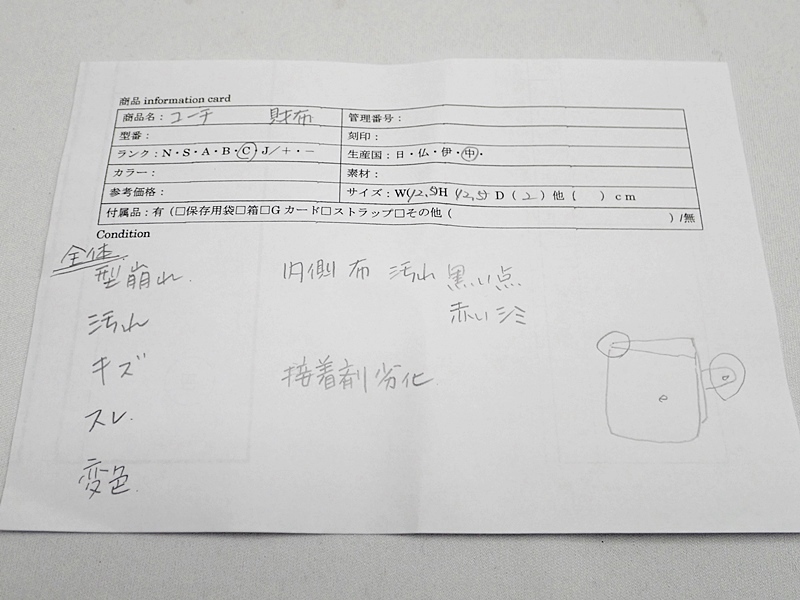 商品 information card
商品名：コーチ 財布 管理番号：
型番： 刻印：
ランク：N・S・A・B・C J／＋・－ 生産国：日・仏・伊・中・
カラー： 素材：
参考価格： サイズ：W(12,5)H(12,5) D(2)他( )cm
付属品：有(□保存用袋□箱□Gカード□ストラップ□その他( )/無
Condition
全体
型崩れ. 内側 布 汚れ 黒い点
赤いシミ
汚れ
キズ 接着剤劣化
スレ.
変色.